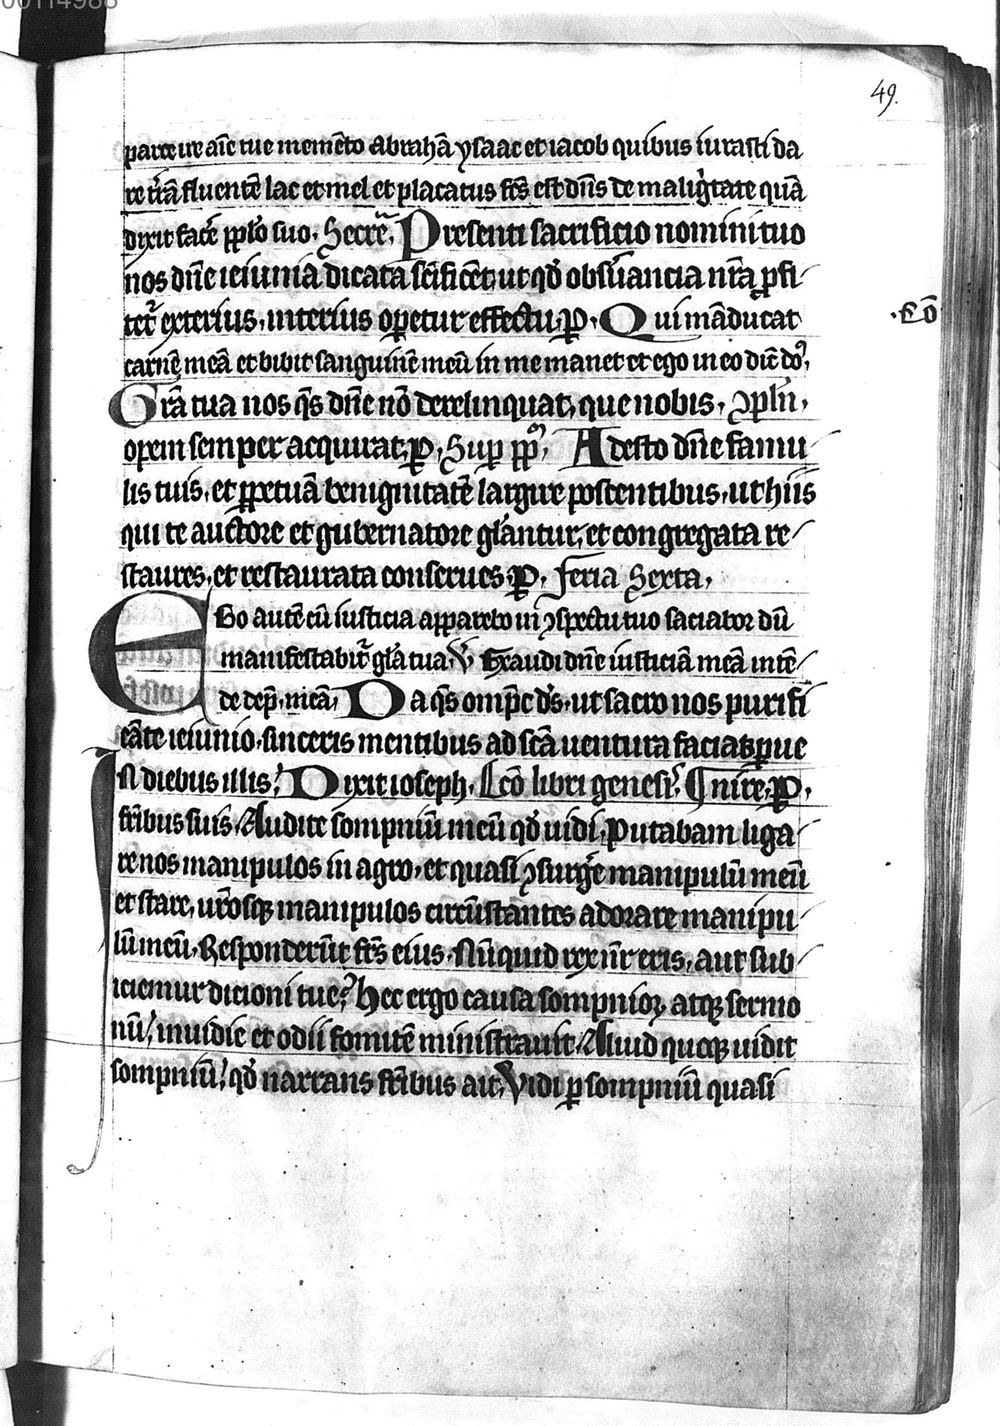 00114988
49.
parce ire aīe tue memēto Abrahā ysaac et iacob quibus iurasti da
re t̄rā fluentē lac et mel et placatus fc̄s est dn̄s de malig̓tate quā
dixit facē pp̄lo suo. Secrē. Presenti sacrificio nomini tuo
nos dn̄e ieiunia dicata sc̄ificēt, ut qd̓ obs̓uancia nr̄a ꝓfi-
tet᷑ exterius, interius oꝑetur effectu. P. Qui māducat
.Cō
carnē meā et bibit sanguinē meū in me manet et ego in eo dic̄ do᷒,
Gr̄a tua nos qs̄ dn̄e nō derelinquat, que nobis,
opem semper acquirat. P. Sup pp̄m, Adesto dn̄e famu-
lis tuis, et ꝑpetuā benignitatē largire postentibus, ut hiis
qui te auctore et gubernatore gl̓antur, et congregata re-
staures, et restaurata conserues. P. Feria Sexta,
Ego autē cū iusticia apparebo in ꝯspectu tuo saciabor dū
manifestabit᷑ gl̓a tua. V̓ Exaudi dn̄e iusticiā meā intē-
de dep̄. meā, Da qs̄ omp̄c ds̄, ut sacro nos purifi
cāte ieiunio, sinceris mentibus ad sc̄a uentura facias ꝑue
N diebus illis, Dixit ioseph. Lc̄o libri genesi᷒. nire. P.
fr̄ibus suis, Audite sompniū meū qd̓ uidi. Putabam liga-
re nos manipulos in agro, et quasi ꝯsurgē manipulū meū
et stare, ur̄osqꝫ manipulos circūstantes adorare manipu-
lū meū. Responderūt fr̄s eius. Nūquid rex nr̄ eris, aut sub-
iciemur dicioni tue? Hec ergo causa sompnioꝝ atqꝫ sermo
nū, inuidie et odii fomitē ministrauit. Aliud quoqꝫ uidit
sompniū, qd̓ narrans fr̄ibus ait, Vidi ꝑ sompniū quasi